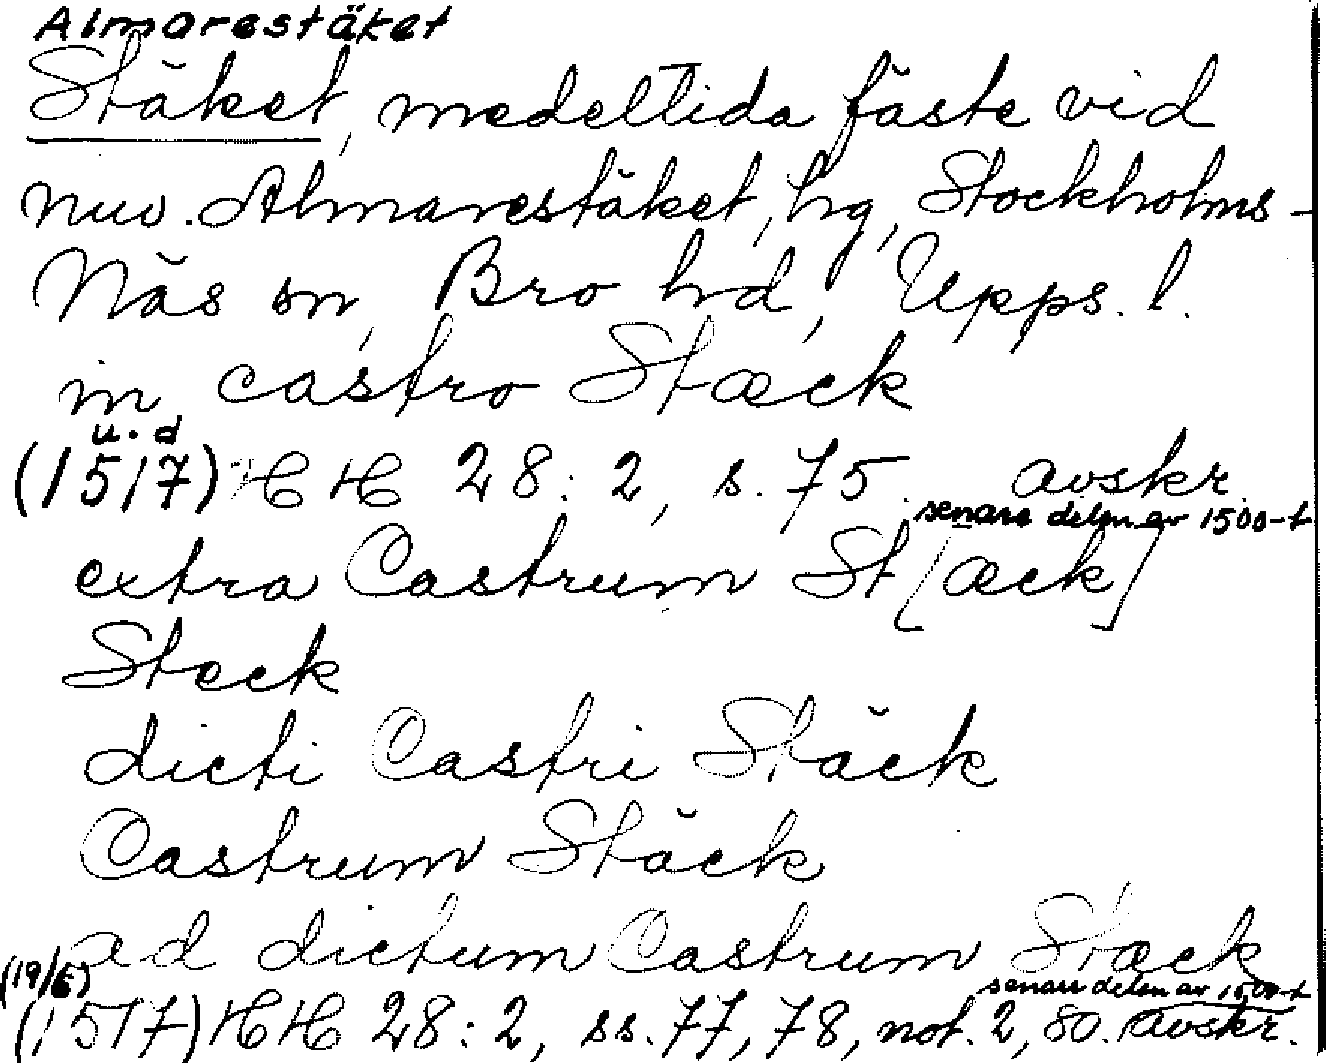 Almarestäket
Stäket, medeltida fäste vid
nuv. Almarestäket, hg, Stockholms-
Näs sn, Bro hd, Upps. l.
in castro Stæck
u.d
(1517) HH 28:2, s. 75. avskr.
senare delen av 1500-t
extra Castrum St[æck]
Steck
dicti Castri Stäck
Castrum Stäck
ad dictum Castrum Stæck
(19/6) senare delen av 1500-t
(1517) HH 28:2, ss. 77, 78, not. 2, 80. avskr.